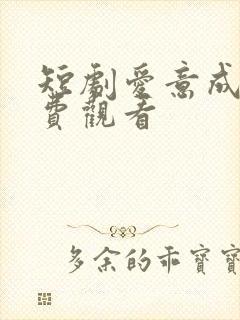 短劇愛意成
費觀看
多余的乖寶寶